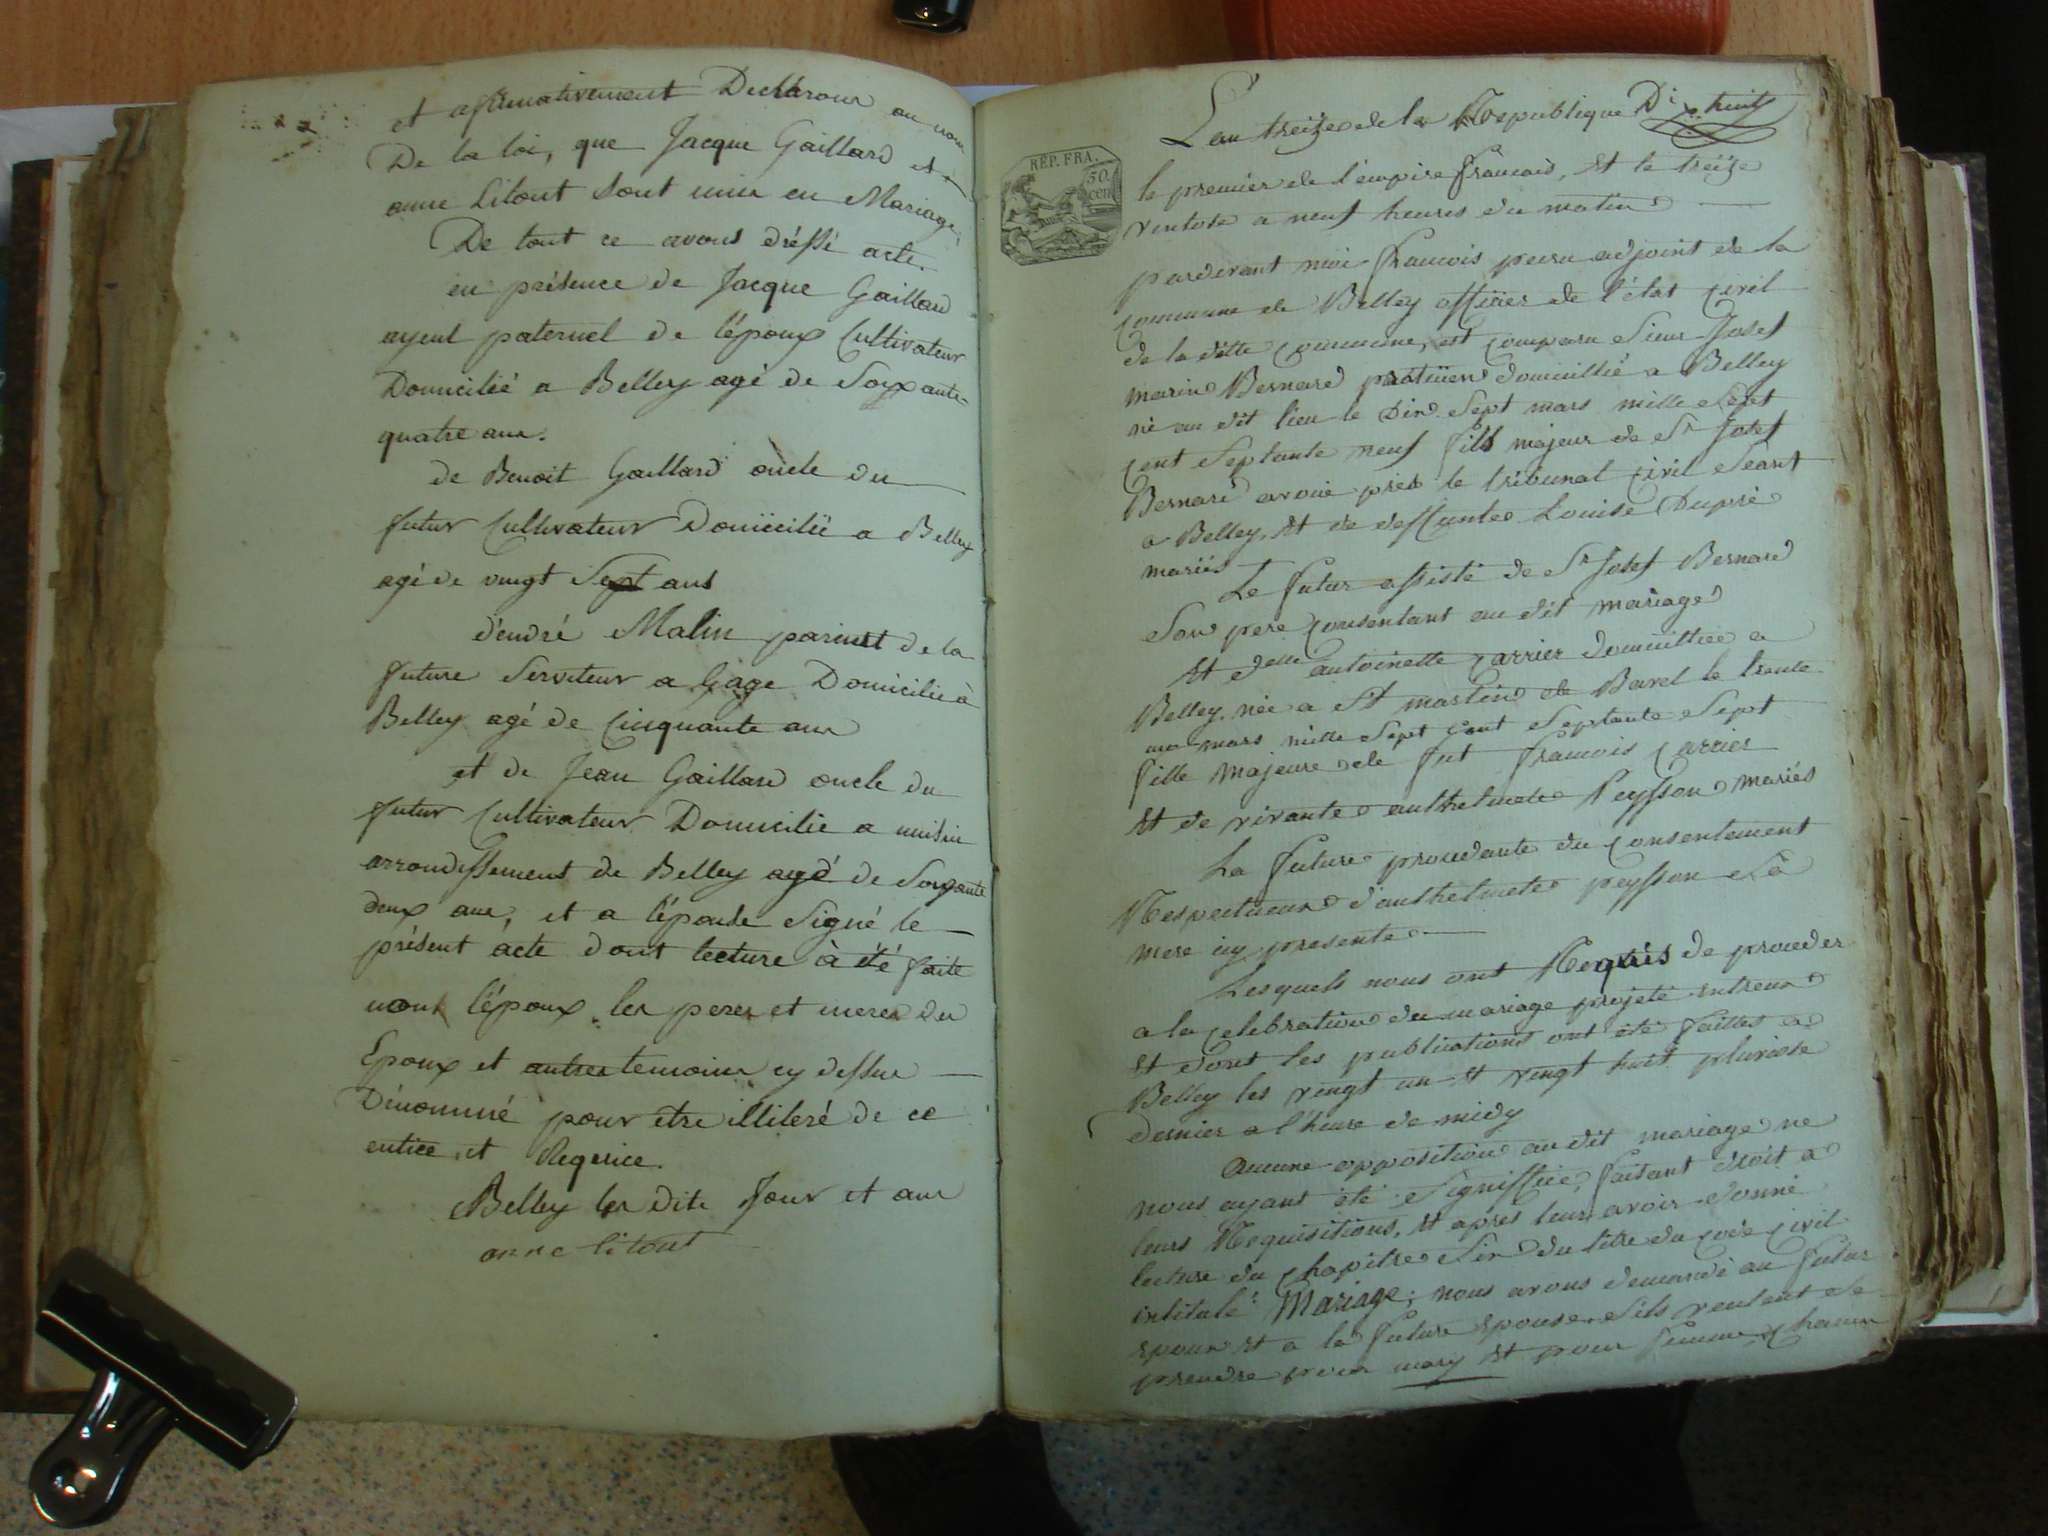 et affirmativement Déclarons au nom
De la loi, que Jacque Gaillard et
anne Litout sont unis en Mariage,
De tout ce avons dréssé acte.
en présence de Jacque Gaillard
ayeul paternel de l'époux Cultivateur
Domicilié a Belley agé de Soixante-
quatre ans.
de Benoit Gaillard oncle du
futur Cultivateur Domicilié a Belley
agé de vingt Sept ans
d'endré Malin parient de la
future Serviteur a Gage Domicilié à
Belley agé de Cinquante ans
et de Jean Gaillard oncle du
futur Cultivateur Domicilie a
arrondissement de Belley agé de Soixante
deux ans, et a l'épouse Signé le
présent acte dont lecture à été faite
non l'époux les peres et meres du
Epoux et autres temoins cy dessus
Dénommé pour etre illiteré de ce
enticé et Requerice.
Belley les dits Jour et ans
anne litout
L'an treize de la Republique Dix huit
REP. FRA.
50. cen
le premier de l'empire francais, et le treize
ventose a neuf heures du matin
pardevant moi francois adjoint de la
commune de Belley officier de l'état civil
de la ditte commune, est comparu Sieur Josef
marin Bernard praticien domicillié a Belley
né au dit lieu le Dix Sept mars mille Sept
cent Septante neuf fils majeur de Sr Josef
Bernard avoué pres le tribunal civil Séant
a Belley, et de deffunte Louise Dupré
mariés
Le futur assisté de Sr Josef Bernard
Son pere consentant au dit mariage
et delle antoinette carrier domicilliée a
Belley née a St martin de Bavel le trente
un mars mille Sept cent Septante Sept
fille majeure de fut francois carrier
et de vivante anthelmete Peysson mariés
La future procedante du consentement
Respectueux d'anthelmete peysson Sa
mere icy presente
Lesquels nous ont Requis de proceder
a la celebration du mariage projeté entreux
et dont les publications ont été faittes a
Belley les vingt un et vingt huit pluviose
dernier a l'heure de midy
Aucune opposition au dit mariage ne
nous ayant été Signiffiée, faisant droit a
leurs Requisitions, et apres leurs avoir donné
lecture du chapitre Six du titre du code civil
intitulé: Mariage; nous avons demandé au futur
epoux et a la future epouse. S'ils veulent se
prendre pour mary et pour femme, chacun